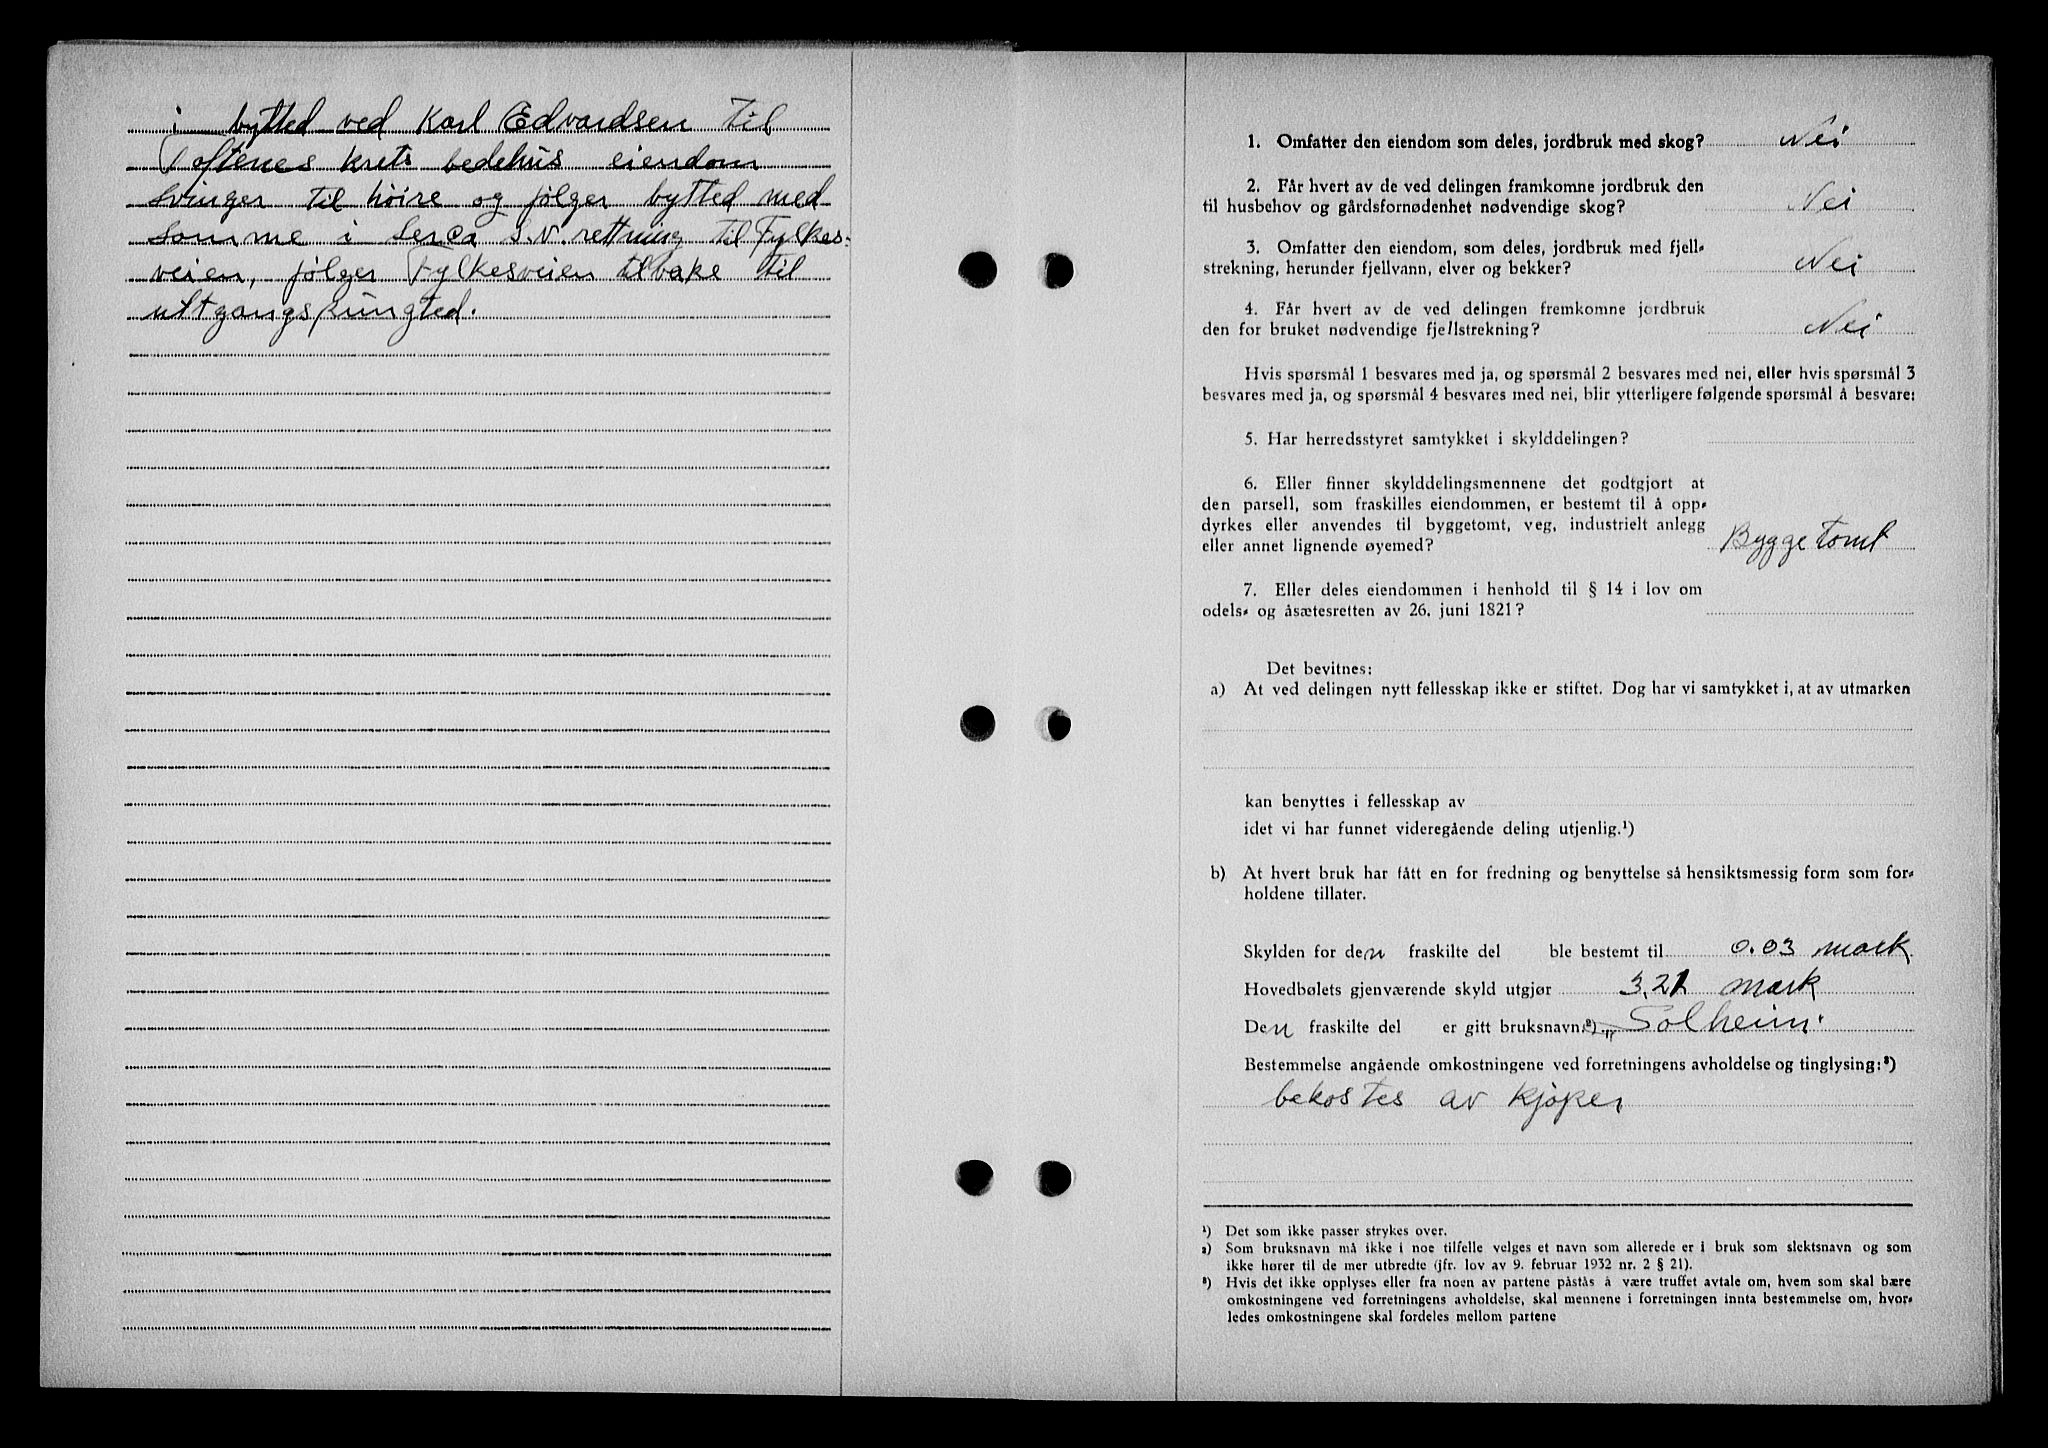 i bytted ved Karl Edvardsen til
Toftenes krets bedehus eiendom
svinger til høire og følger bytted med
somme i serca S.V. rettning til Fylkes-
veien, følger Fylkesveien tilbake til
uttgangspungted.
1. Omfatter den eiendom som deles, jordbruk med skog? Nei
2. Får hvert av de ved delingen framkomne jordbruk den
til husbehov og gårdsfornødenhet nødvendige skog? Nei
3. Omfatter den eiendom, som deles, jordbruk med fjell-
strekning, herunder fjellvann, elver og bekker? Nei
4. Får hvert av de ved delingen fremkomne jordbruk
den for bruket nødvendige fjellstrekning? Nei
Hvis spørsmål 1 besvares med ja, og spørsmål 2 besvares med nei, eller hvis spørsmål 3
besvares med ja, og spørsmål 4 besvares med nei, blir ytterligere følgende spørsmål å besvare:
5. Har herredsstyret samtykket i skylddelingen?
6. Eller finner skylddelingsmennene det godtgjort at
den parsell, som fraskilles eiendommen, er bestemt til å opp-
dyrkes eller anvendes til byggetomt, veg, industrielt anlegg
eller annet lignende øyemed? Bygge tomt
7. Eller deles eiendommen i henhold til § 14 i lov om
odels- og åsætesretten av 26. juni 1821?
Det bevitnes:
a) At ved delingen nytt fellesskap ikke er stiftet. Dog har vi samtykket i, at av utmarken
kan benyttes i fellesskap av
idet vi har funnet videregående deling utjenlig.¹)
b) At hvert bruk har fått en for fredning og benyttelse så hensiktsmessig form som for-
holdene tillater.
Skylden for den fraskilte del ble bestemt til 0.03 mark
Hovedbølets gjenværende skyld utgjør 3,21 mark
Den fraskilte del er gitt bruksnavn:²) „Solheim"
Bestemmelse angående omkostningene ved forretningens avholdelse og tinglysing:³)
bekostes av kjøper
¹) Det som ikke passer strykes over.
²) Som bruksnavn må ikke i noe tilfelle velges et navn som allerede er i bruk som slektsnavn og som
ikke hører til de mer utbredte (jfr. lov av 9. februar 1932 nr. 2 § 21).
³) Hvis det ikke opplyses eller fra noen av partene påstås å være truffet avtale om, hvem som skal bære
omkostningene ved forretningens avholdelse, skal mennene i forretningen innta bestemmelse om, hvor-
ledes omkostningene skal fordeles mellom partene